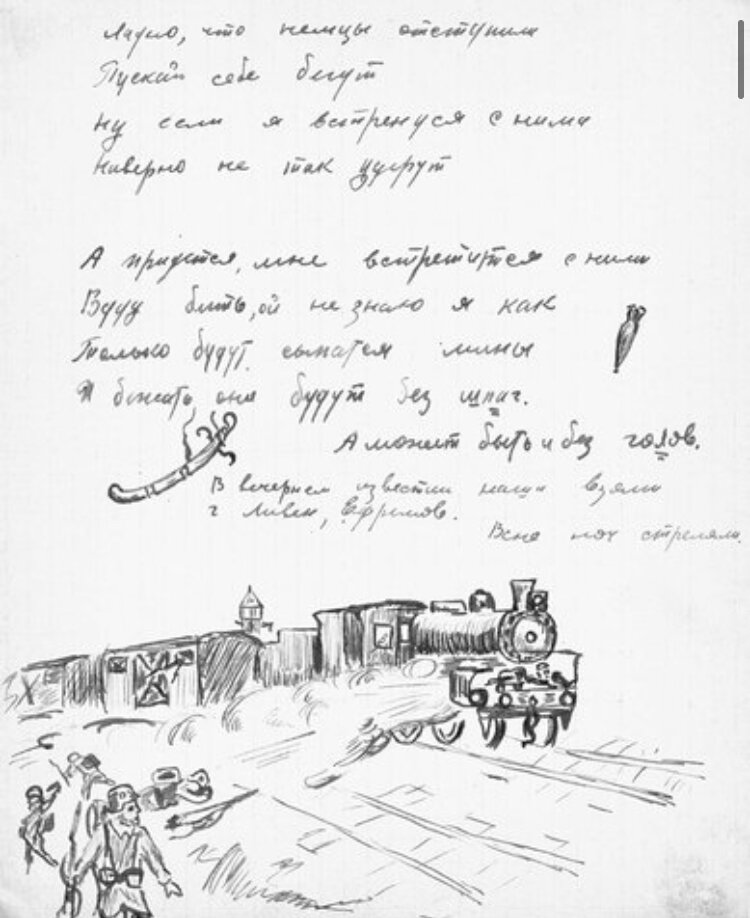 Ладно, что немцы отступили
Пускай себе бегут
Ну если я встренуся с ними
Наверно не так удерут
А придется, мне встретится с ними
Буду бить, ой не знаю я как
Только будут сыпатся мины
И бежать они будут без шпаг.
А может быть и без голов.
В вечернем известии наши взяли
г Ливен, Ефремов.
Всю ноч стреляли.